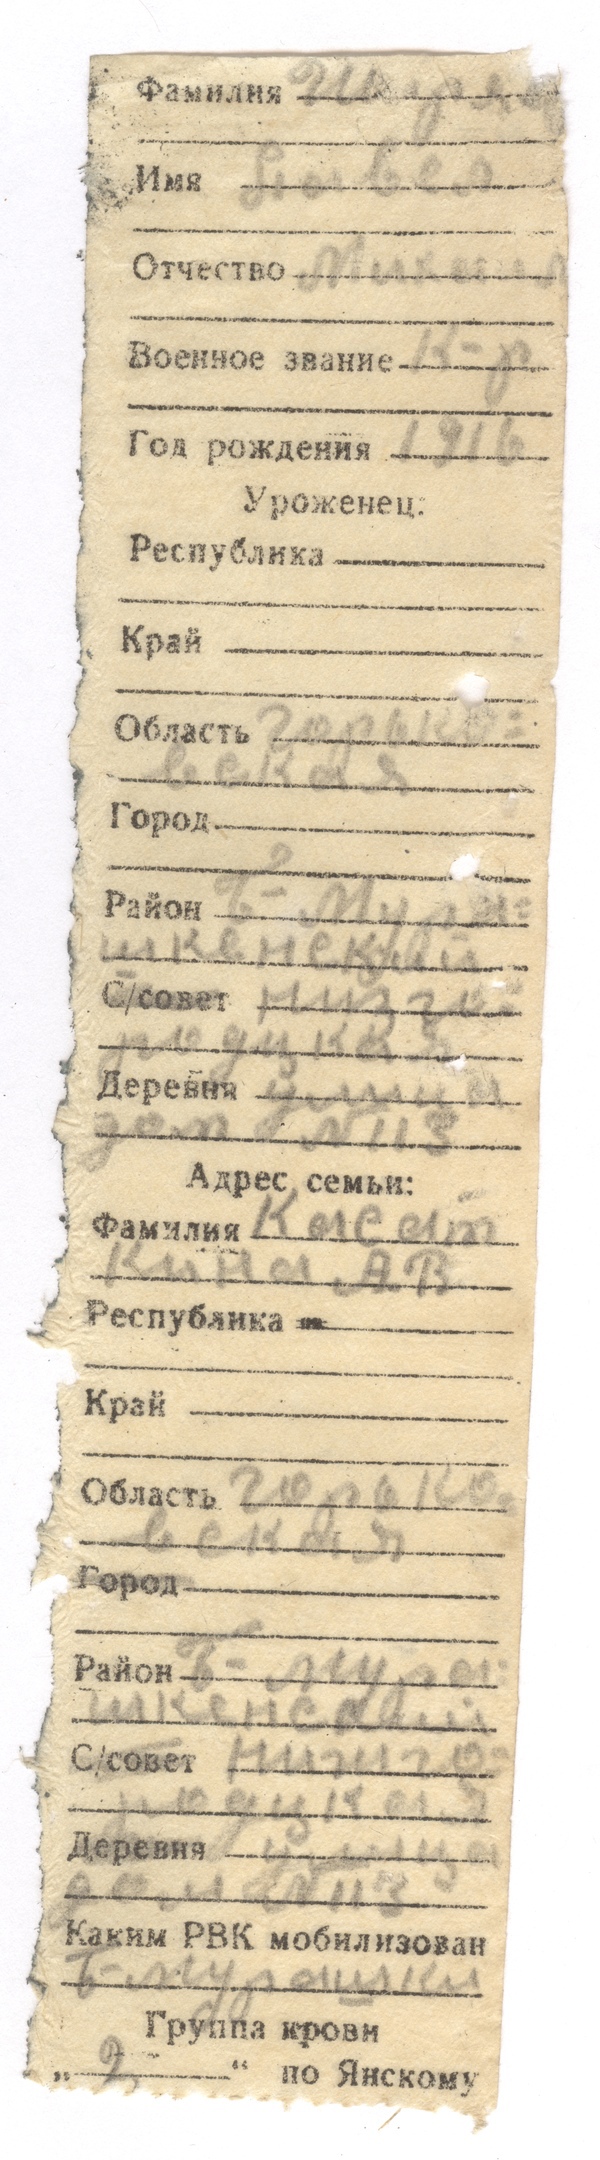 Фамилия
Имя Павел
Отчество Михаил
Военное звание К-р
Год рождения 1916
Уроженец:
Республика
Край
Область Горько=
вская
Город
Район Б- Мура=
шкенский
С/совет
Деревня улица
дом №113
Адрес семьи:
Фамилия Касат
кина АВ
Республика
Край
Область Горько=
вская
Город
Район Б- Мура=
шкенский
С/совет Нижего=
родцкая
Деревня улица
дом №113
Каким РВК мобилизован
Б-Мурашки
Группа крови
„ 2 “ по Янскому